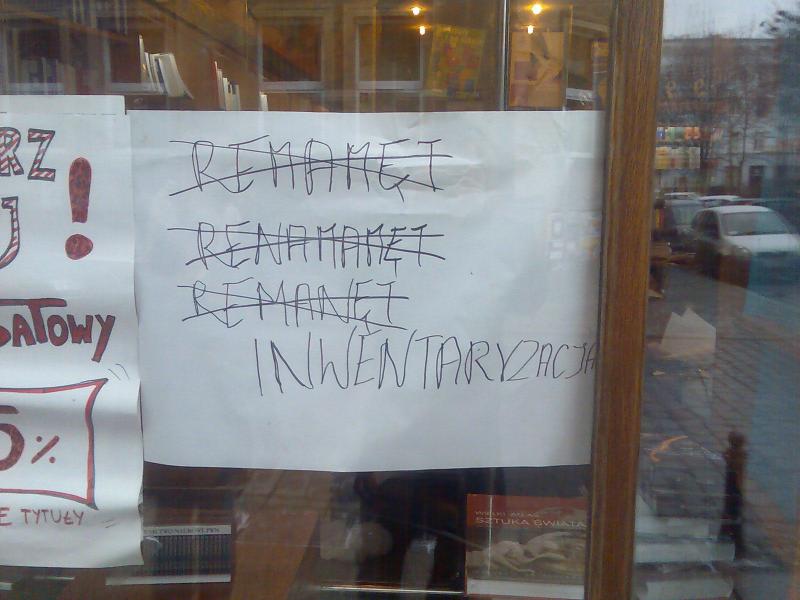 RZ
J !
SATOWY
5%
E TYTUŁY
REMAMĘT
RENAMAMĘT
REMANĘT
INWENTARYZACJA
WIELKI ATLAS
SZTUKA ŚWIATA